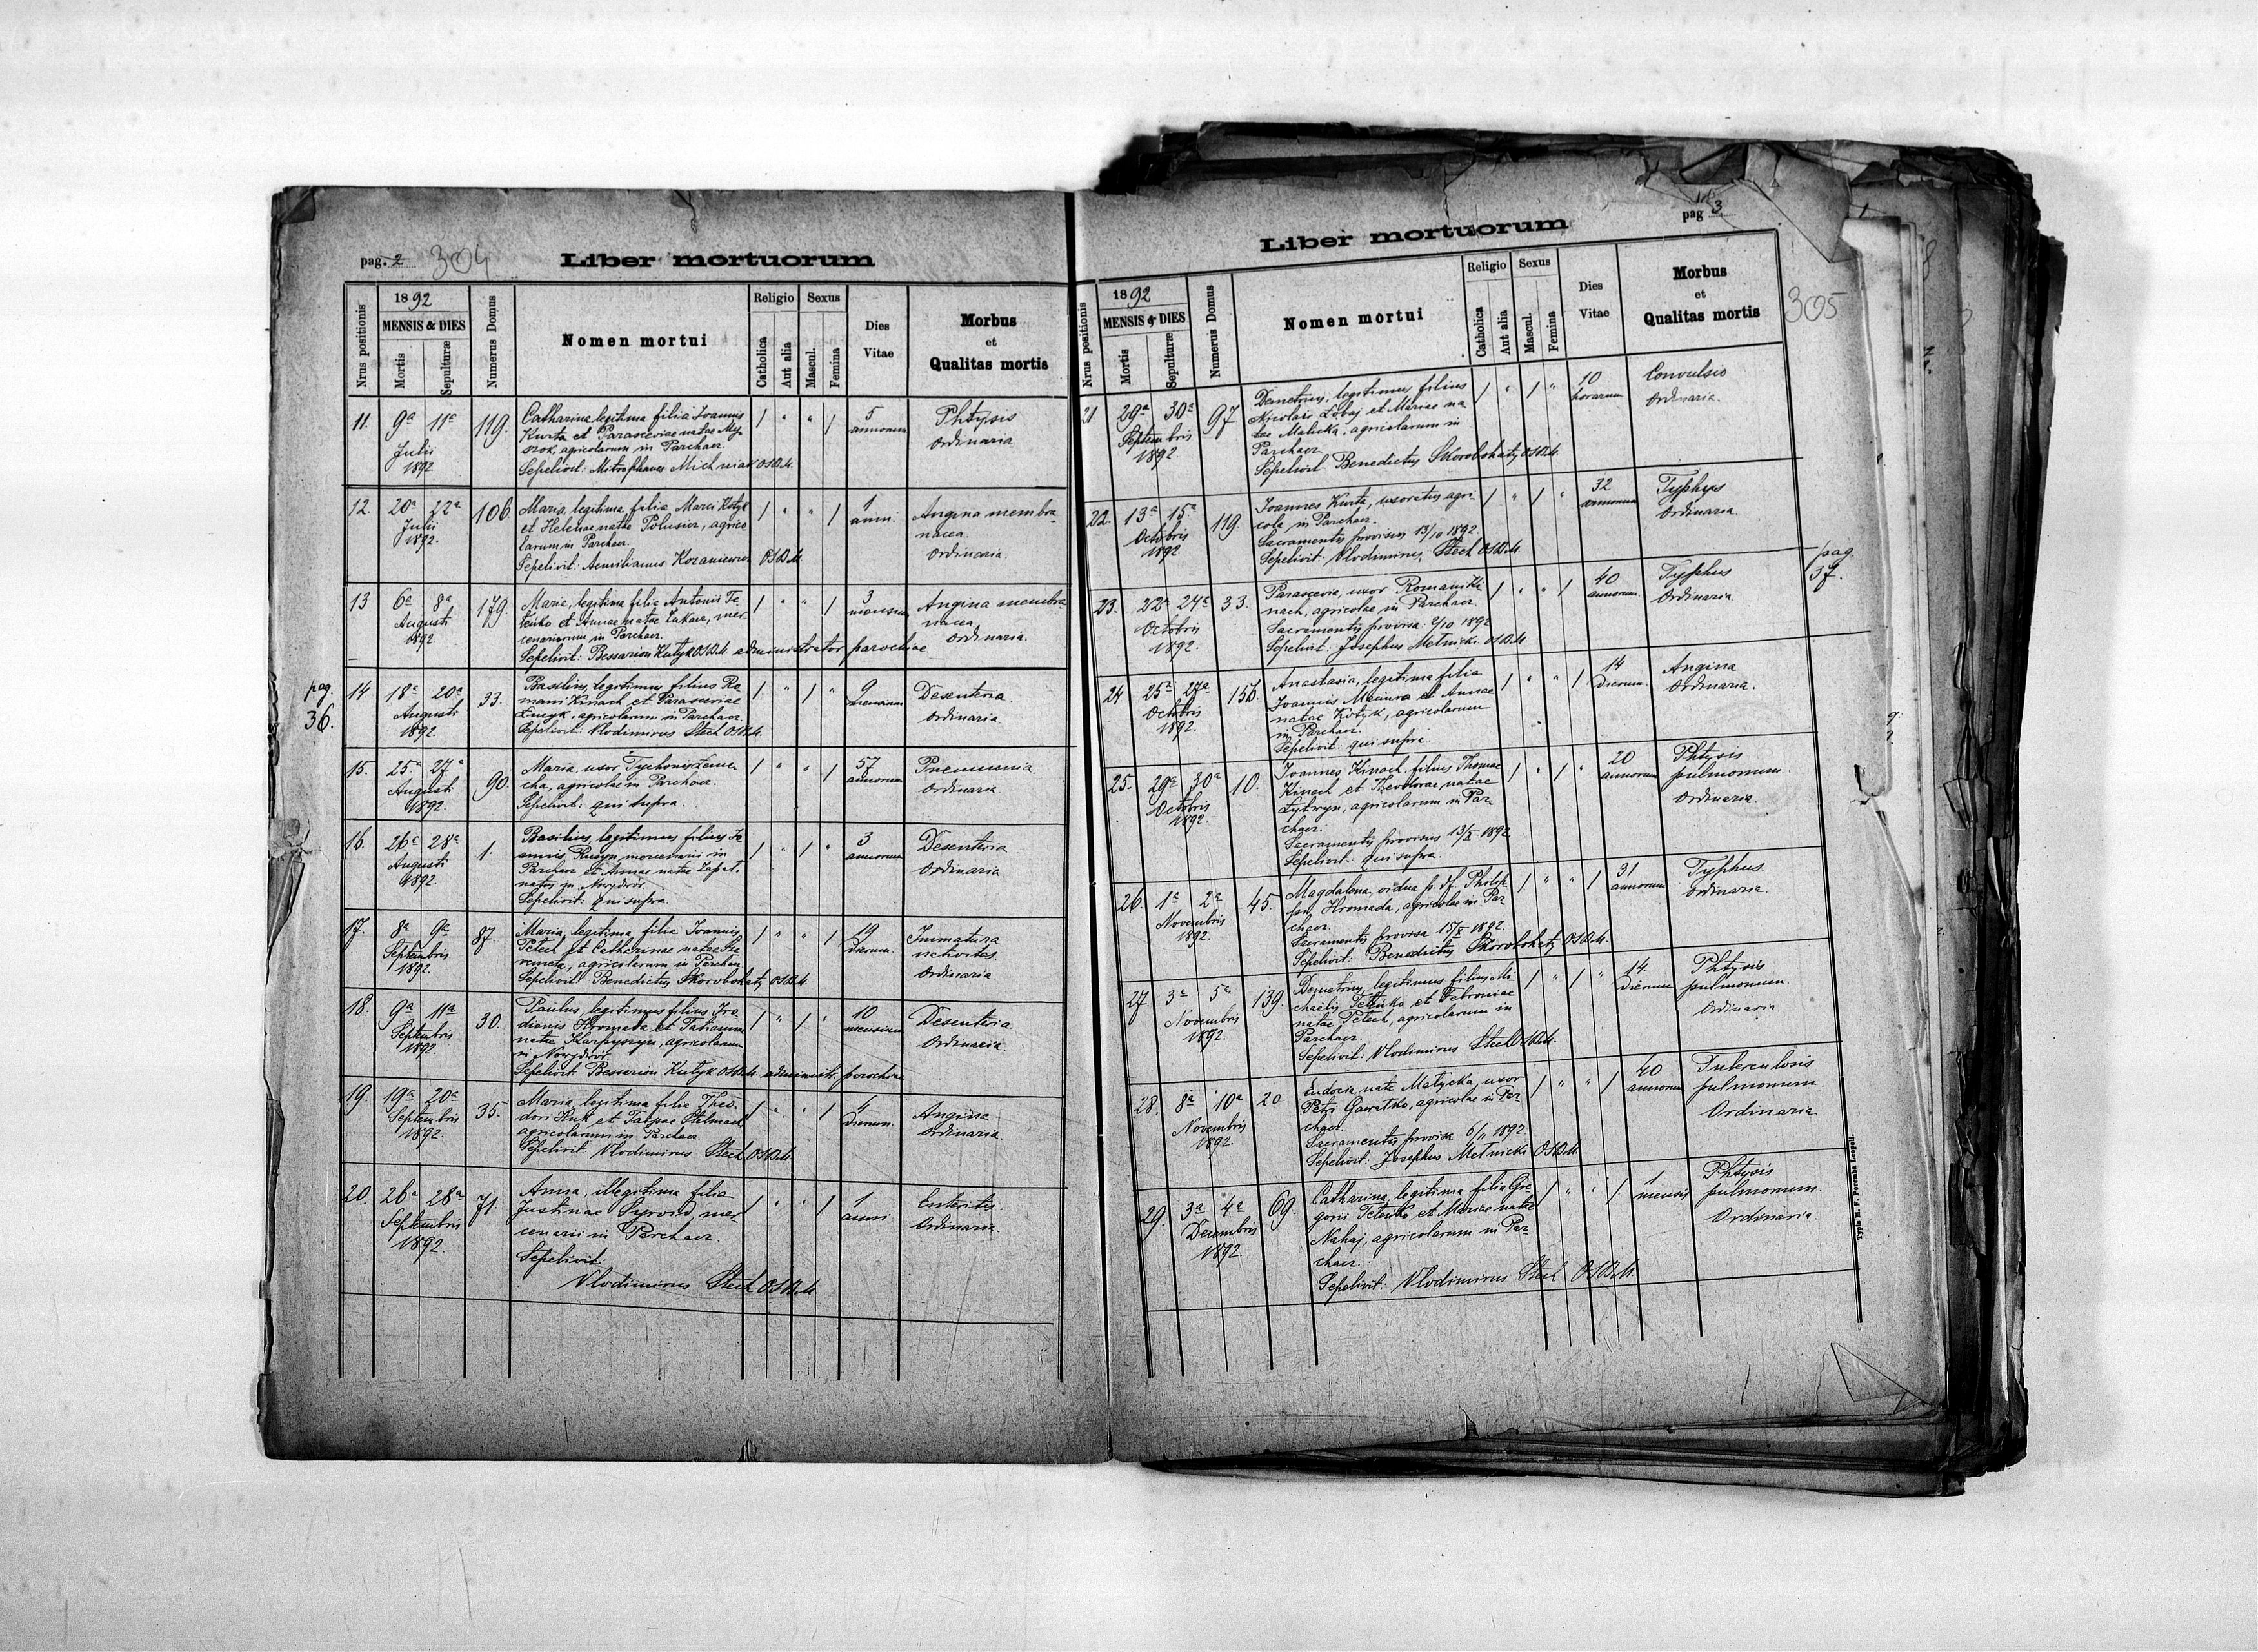 pag. 2 304
Liber mortuorum
Nrus positionis
1892
MENSIS & DIES
Mortis
Sepulturæ
Numerus Domus
Nomen mortui
Religio
Catholica
Aut alia
Sexus
Mascul.
Femina
Dies
Vitae
Morbus
et
Qualitas mortis
11. 9a 11a Julii 1892 119.
Catharina, legitima filia Joannis
Kurta et Parasceviae natae
agricolarum in Parchacz.
Sepelivit: Mitrophanes Michniak OSBM.
5 annorum
Phtysis
Ordinaria
12. 20a 22a Julii 1892. 106
Maria, legitima filia Marci Kotyk
et Helenae natae Polusior, agrico
larum in Parchacz.
Sepelivit: Aemilianus OSBM.
1 anni.
Angina membra
nacea.
Ordinaria.
13 6a 8a Augusti 1892 179.
Maria, legitima filia Antonii Te
teńko et Annae natae mer
cenariorum in Parchacz.
Sepelivit: Bessarion Kutyk OSBM administrator parochiae
3 mensium
Angina membra
nacea
Ordinaria.
pag.
36.
14 18a 20a Augusti 1892 33.
Basilius, legitimus filius Ro
mani Kinach et Parasceviae
agricolarum in Parchacz.
Sepelivit: Vlodimirus Stech OSBM.
9 mensium
Desenteria
Ordinaria
15. 25a 27a Augusti 1892. 90.
Maria, uxor Tychonis
cha, agricolae in Parchacz.
Sepelivit: qui supra.
57 annorum
Pneumonia
Ordinaria
16. 26a 28a Augusti 1892. 1.
Basilius, legitimus filius Jo
annis Rusyn, mercenarii in
Parchacz et Annae natae
natus in Nowydwór.
Sepelivit: qui supra.
3 annorum
Desenteria
Ordinaria
17. 8a 9a Septembris 1892. 87.
Maria, legitima filia Joannis
Petech et Catharinae natae
agricolarum in Parchacz
Sepelivit Benedictus Skorobohaty OSBM.
19 dierum.
Immatura
nativitas.
Ordinaria.
18. 9a 11a Septembris 1892. 30.
Paulus, legitimus filius Iro
dionis Hromada et Tatiannae
natae Karpyszyn, agricolarum
in Nowydwór.
Sepelivit Bessarion Kutyk OSBM. administr. parochiae
10 mensium
Desenteria
Ordinaria.
19. 19a 20a Septembris 1892. 35.
Maria, legitima filia Theo
dori Kuk et Stelmach
agricolarum in Parchacz
Sepelivit. Vlodimirus Stech OSBM.
4 dierum.
Angina
Ordinaria.
20. 26a 28a Septembris 1892. 71.
Anna, illegitima filia
Justinae mer
cenarii in Parchacz.
Sepelivit:
Vlodimirus Stech OSBM
1 anni
Enteritis.
Ordinaria
Liber mortuorum
pag 3
305
Nrus positionis
1892
MENSIS & DIES
Mortis
Sepulturæ
Numerus Domus
Nomen mortui
Religio
Catholica
Aut alia
Sexus
Mascul.
Femina
Dies
Vitae
Morbus
et
Qualitas mortis
21 29a 30a Septembris 1892. 97
Demetrius, legitimus filius
Nicolai et Mariae na
tae Malicka, agricolarum in
Parchacz
Sepelivit Benedictus Skorobohaty OSBM.
10 horarum
Convulsio
Ordinaria.
22. 13a 15a Octobris 1892 119
Joannes Kurta, uxoratus agri
cola in Parchacz.
Sacramentis provisus 13/10 1892.
Sepelivit: Vlodimirus Stech OSBM.
32 annorum
Typhus
Ordinaria.
23. 22a 24a Octobris 1892. 33.
Parascevia, uxor Romani Ki
nach, agricolae in Parchacz
Sacramentis provisa 2/10 1892
Sepelivit: Josephus Melnicki. OSBM
40 annorum
Typhus
Ordinaria.
pag.
37.
24. 25a 27a Octobris 1892. 156.
Anastasia, legitima filia
Joannis et Annae
natae Kotyk, agricolarum
in Parchacz.
Sepelivit: qui supra.
14 dierum.
Angina
Ordinaria.
25. 29a 30a Octobris 1892. 10.
Joannes Kinach, filius Thomae
Kinach et Theodorae natae
agricolarum in Par
chacz.
Sacramentis provisus 13/X 1892.
Sepelivit: qui supra.
20 annorum
Phtysis
pulmonum.
Ordinaria.
26. 1a 2a Novembris 1892. 45.
Magdalena, vidua p. df.
Hromada, agricolae in Par
chacz.
Sacramentis provisa 15/X 1892.
Sepelivit: Benedictus Skorobohaty OSBM.
31 annorum
Typhus
Ordinaria.
27. 3a 5a Novembris 1892. 139.
Demetrius, legitimus filius Mi
chaelis Teteńko et Petroniae
natae Petech, agricolarum in
Parchacz.
Sepelivit: Vlodimirus Stech OSBM.
14 dierum
Phtysis
pulmonum.
Ordinaria
28. 8a 10a Novembris 1892. 20.
Eudocia nata Matycka, uxor
Petri Gawratko, agricolae in Par
chacz.
Sacramentis provisa 6/11 1892
Sepelivit: Josephus Melnicki OSBM
40 annorum
Tuberculosis
pulmonum
Ordinaria
29. 3a 4a Decembris 1892. 69.
Catharina, legitima filia Gre
gorii Teteńko, et Mariae natae
Nahaj, agricolarum in Par
chacz.
Sepelivit: Vlodimirus Stech OSBM.
1 mensis
Phtysis
pulmonum.
Ordinaria.
Typis M. F. Poremba Leopoli.